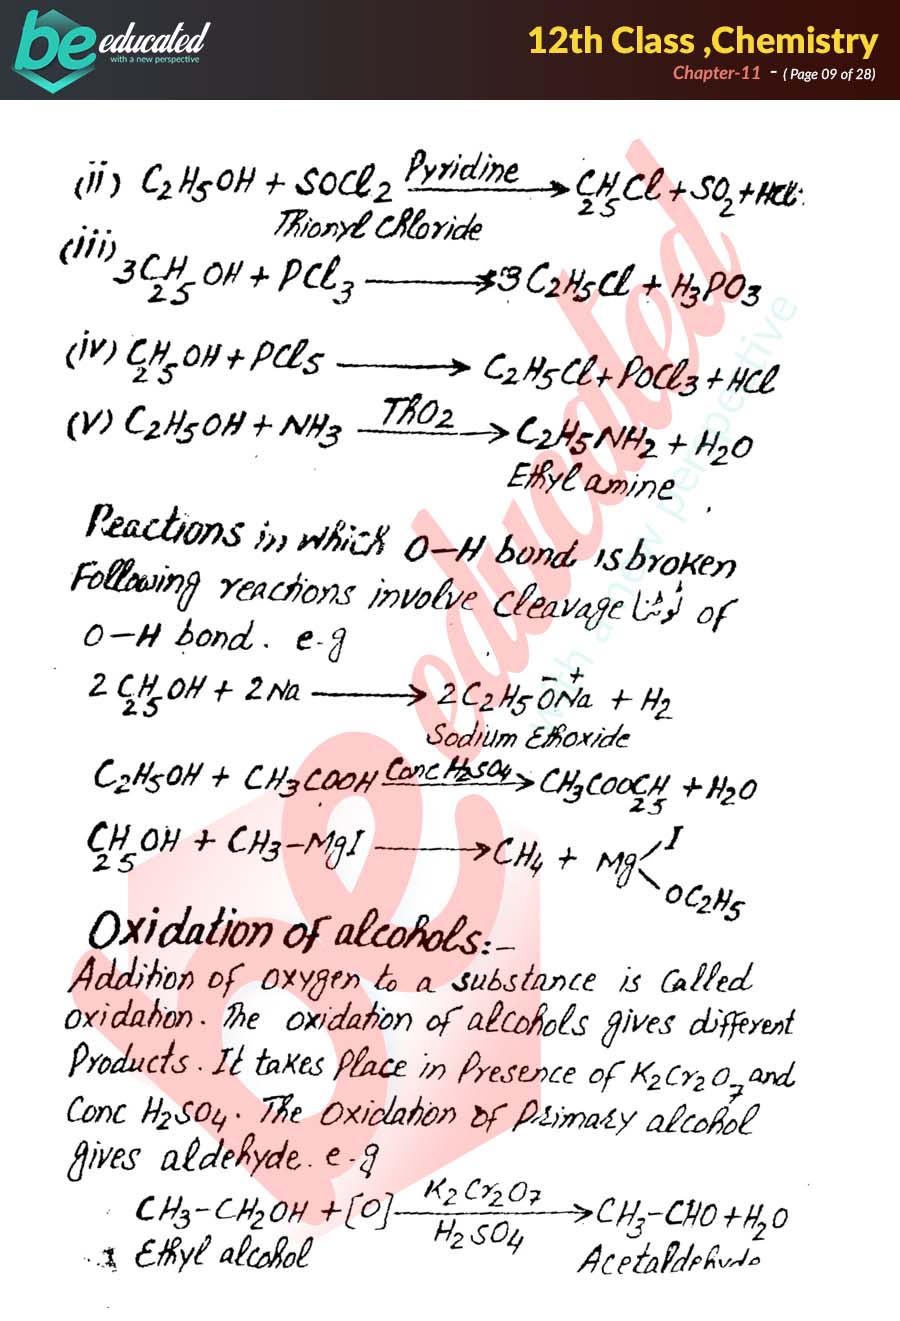 be educated
with a new perspective
12th Class ,Chemistry
Chapter-11 - ( Page 09 of 28)
(ii) C2H5OH + SOCl2 Pyridine → C2H5Cl + SO2 + HCl.
Thionyl Chloride
(iii) 3C2H5OH + PCl3 → 3C2H5Cl + H3PO3
(iv) C2H5OH + PCl5 → C2H5Cl + POCl3 + HCl
(v) C2H5OH + NH3 ThO2 → C2H5NH2 + H2O
Ethyl amine
Reactions in which O-H bond is broken
Following reactions involve cleavage of
O-H bond. e.g
2C2H5OH + 2Na → 2C2H5O⁻Na⁺ + H2
Sodium Ethoxide
C2H5OH + CH3COOH Conc H2SO4 → CH3COOC2H5 + H2O
C2H5OH + CH3-MgI → CH4 + Mg I
OC2H5
Oxidation of alcohols:-
Addition of oxygen to a substance is called
oxidation. The oxidation of alcohols gives different
Products. It takes Place in Presence of K2Cr2O7 and
Conc H2SO4. The oxidation of Primary alcohol
gives aldehyde. e-g
CH3-CH2OH + [O] K2Cr2O7 → CH3-CHO + H2O
H2SO4
Ethyl alcohol Acetaldehyde
be educated
with a new perspective